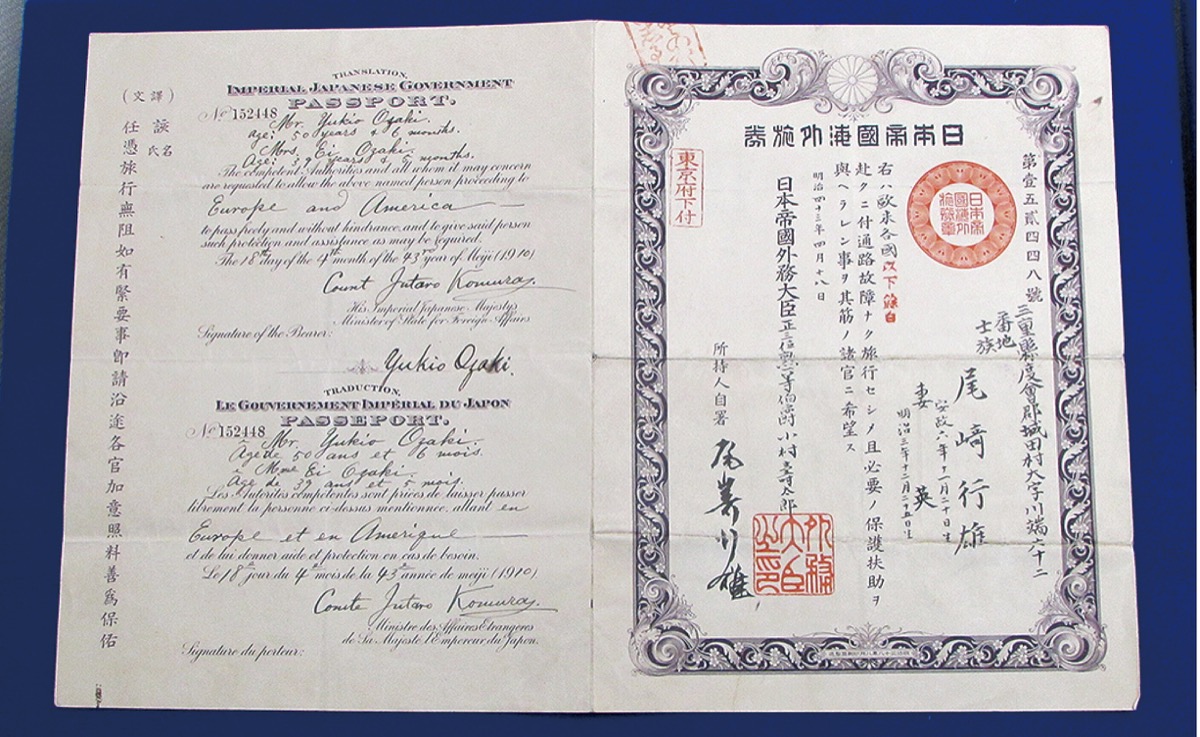 TRANSLATION.
IMPERIAL JAPANESE GOVERNMENT
PASSPORT.
No 152448
Mr. Yukio Ozaki.
age: 50 years & 6 months.
Mrs. Ei Ozaki.
Age: 39 years & 5 months.
The competent Authorities and all whom it may concern
are requested to allow the above named person proceeding to
Europe and America
to pass freely and without hindrance, and to give said person
such protection and assistance as may be required.
The 18th day of the 4th month of the 43rd year of Meiji (1910)
Count Jutaro Komura.
His Imperial Japanese Majesty's
Minister of State for Foreign Affairs
Signature of the Bearer:
Yukio Ozaki.
TRADUCTION.
LE GOUVERNEMENT IMPÉRIAL DU JAPON
PASSEPORT.
No 152448
Mr. Yukio Ozaki.
Age de 50 ans et 6 mois.
Mme Ei Ozaki.
Age de 39 ans et 5 mois.
Les Autorités compétentes sont priées de laisser passer
librement la personne ci-dessus mentionnée, allant en
Europe et en Amerique
et de lui donner aide et protection en cas de besoin.
Le 18 jour du 4 mois de la 43 année de meiji (1910)
Comte Jutaro Komura.
Ministre des Affaires Etrangères
de Sa Majesté l'Empereur du Japon.
Signature du porteur:
(譯文)
該氏名
任憑旅行無阻如有緊要事卽請沿途各官加意照料善爲保佑
日本帝國海外旅券
第壹五貳四四八號
日本帝國海外旅券章
三重縣度會郡城田村大字川端六十二
番地
士族
尾崎行雄
安政六年十一月二十日生
妻 英
明治三年十二月二十五日生
右ハ歐米各國以下餘白
赴クニ付通路故障ナク旅行セシメ且必要ノ保護扶助ヲ
與ヘラレン事ヲ其筋ノ諸官ニ希望ス
明治四十三年四月十八日
東京府下付
日本帝國外務大臣正三位勲一等伯爵小村壽太郎
外務大臣之印
所持人自署
尾崎行雄